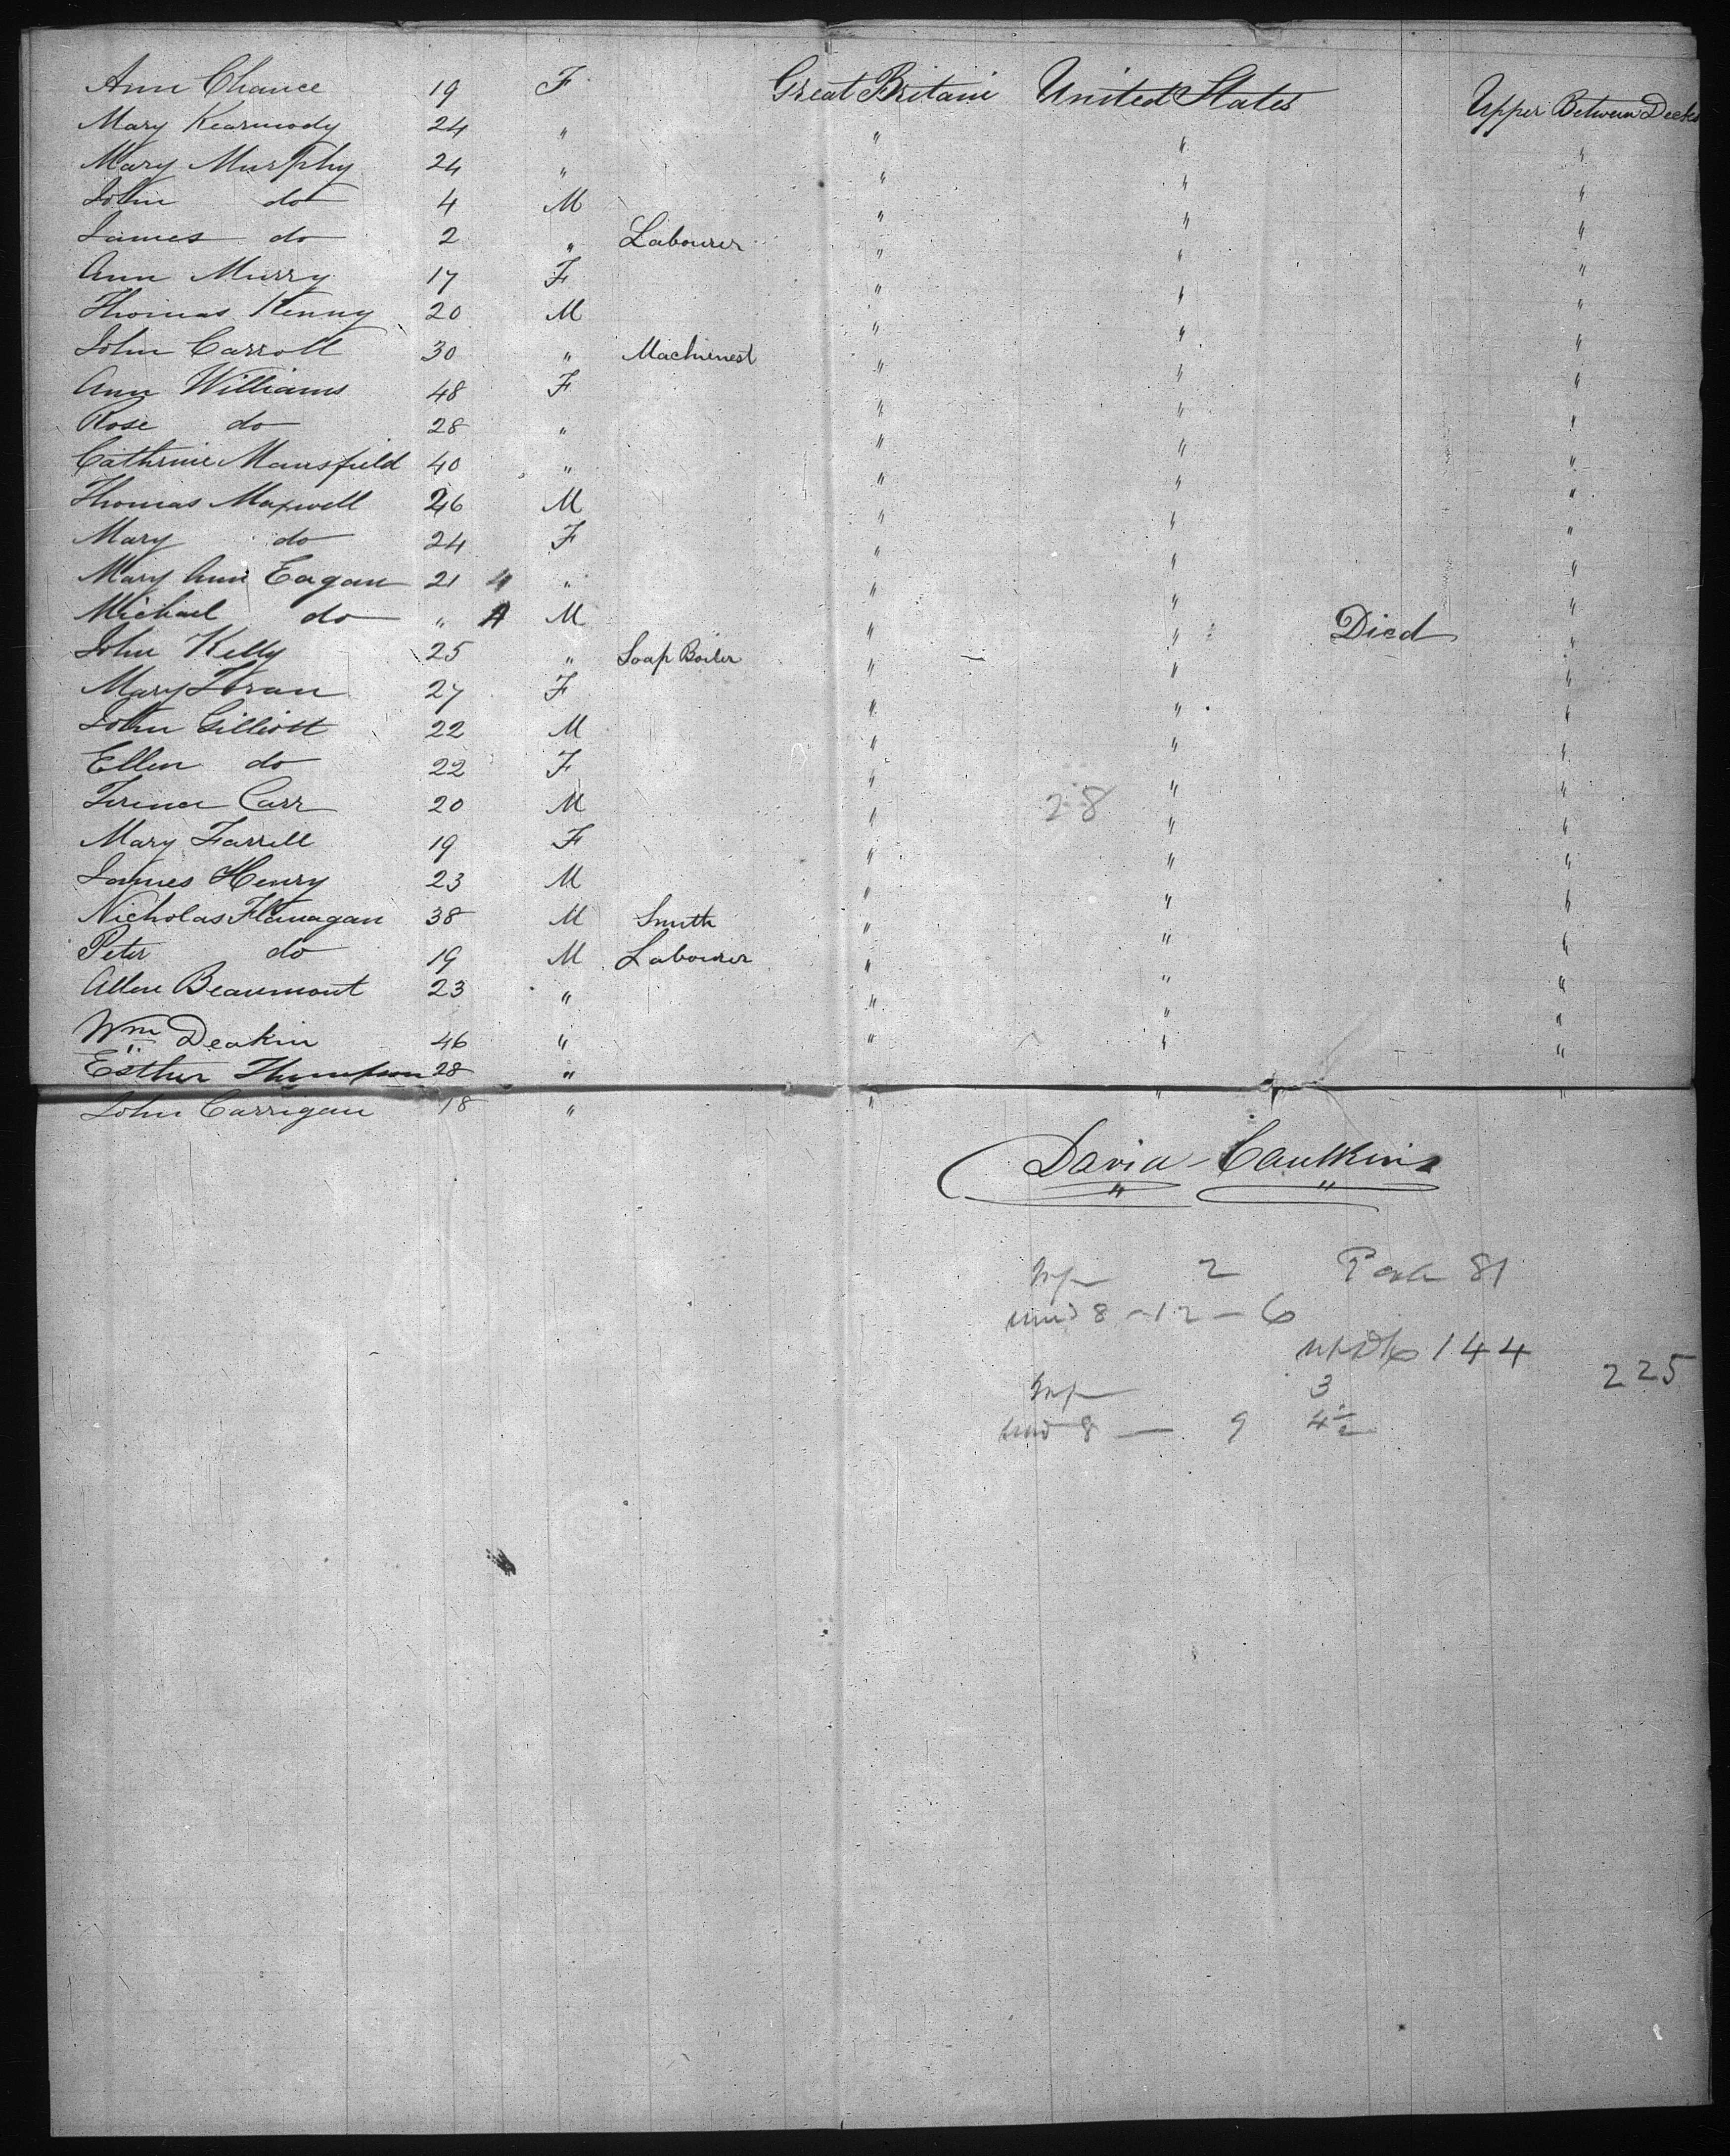 Ann Chance 19 F Great Britain United States Upper Between Decks
Mary Kearmody 24 " " " "
Mary Murphy 24 " " " "
John do 4 M " " "
James do 2 " Labourer " " "
Ann Murry 17 F " " "
Thomas Kenny 20 M " " "
John Carroll 30 " Machienest " " "
Ann Williams 48 F " " "
Rose do 28 " " " "
Cathrine Mansfield 40 " " " "
Thomas Maxwell 26 M " " "
Mary do 24 F " " "
Mary Ann Eagan 21 " " " "
Michael do " M " " Died "
John Kelly 25 " Soap Boiler " " "
Mary 27 F " " "
John Gilliott 22 M " " "
Ellen do 22 F " " "
Terence Carr 20 M " 28 " "
Mary Farrell 19 F " " "
James Henry 23 M " " "
Nicholas Flanagan 38 M Smith " " "
Peter do 19 M Labourer " " "
Allen Beaumont 23 " " " "
Wm Deakin 46 " " " "
Esther Thompson 28 "
John Carrigan 18 " " " "
David Caulkins
2 81
8 - 12 - 6
144
225
3
8 — 9 4½